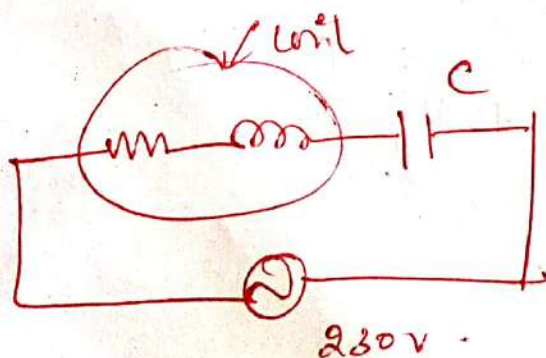 coil
C
230V.